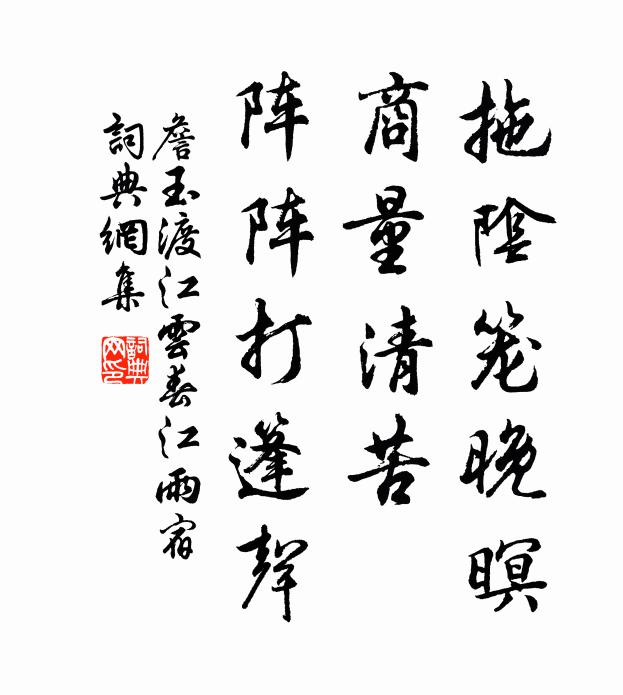 拖陰笼晚暝
商量清苦
阵阵打篷聲
詹玉渡江雲春江雨宿
詞典網集
詞典网印